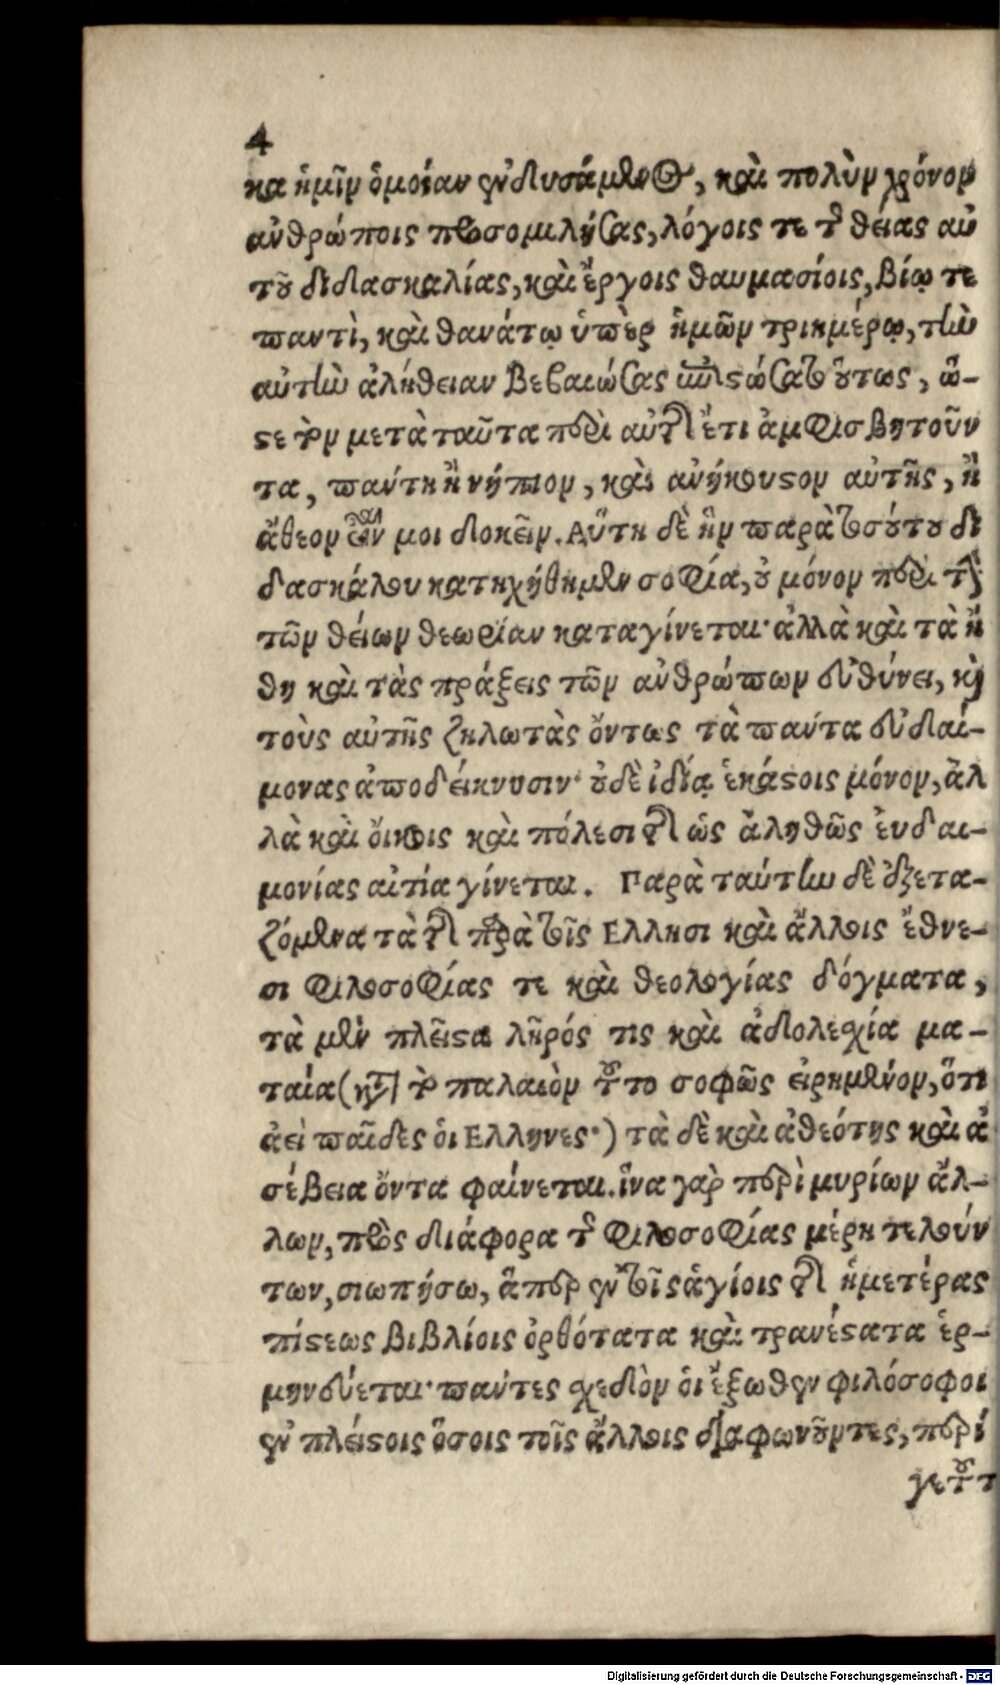 4
κα ἡμῖν ὁμοίαν ἐνδυσάμενος, καὶ πολὺν χρόνον
ἀνθρώποις προσομιλήσας, λόγοις τε τῆς θείας αὐ
τοῦ διδασκαλίας, καὶ ἔργοις θαυμασίοις, βίῳ τε
παντὶ, καὶ θανάτῳ ὑπὲρ ἡμῶν τριημέρῳ, τὴν
αὐτὴν ἀλήθειαν βεβαιώσας ἐπιστώσατο οὕτως, ὥ-
στε τὸν μετὰ ταῦτα περὶ αὐτῆς ἔτι ἀμφισβητοῦν
τα, πάντη ἢ νήπιον, καὶ ἀνήκουστον αὐτῆς, ἢ
ἄθεον εἶναί μοι δοκεῖν. Αὕτη δὲ ἣν παρὰ τοσούτου δι
δασκάλου κατηχήθημεν σοφία, οὐ μόνον περὶ τὴν
τῶν θείων θεωρίαν καταγίνεται· ἀλλὰ καὶ τὰ ἤ
θη καὶ τὰς πράξεις τῶν ἀνθρώπων εὐθύνει, καὶ
τοὺς αὐτῆς ζηλωτὰς ὄντως τὰ πάντα εὐδαί-
μονας ἀποδείκνυσιν· οὐδὲ ἰδίᾳ ἑκάστοις μόνον, ἀλ
λὰ καὶ οἴκοις καὶ πόλεσι τῆς ὡς ἀληθῶς ἐυδαι-
μονίας αἰτία γίνεται. Παρὰ ταύτην δὲ ἐξετα-
ζόμενα τὰ τῆς παρὰ τοῖς Ελλησι καὶ ἄλλοις ἔθνε-
σι φιλοσοφίας τε καὶ θεολογίας δόγματα,
τὰ μὲν πλεῖστα λῆρός τις καὶ ἀδολεσχία μα-
ταία (κατὰ τὸ παλαιὸν τοῦτο σοφῶς εἰρημένον, ὅτι
ἀεὶ παῖδες ὁι Ελληνες·) τὰ δὲ καὶ ἀθεότης καὶ ἀ
σέβεια ὄντα φαίνεται. ἵνα γὰρ περὶ μυρίων ἄλ-
λων, πρὸς διάφορα τῆς φιλοσοφίας μέρη τελούν
των, σιωπήσω, ἅπερ ἐν τοῖς ἁγίοις τῆς ἡμετέρας
πίστεως βιβλίοις ὀρθότατα καὶ τρανέστατα ἑρ-
μηνεύεται· πάντες σχεδὸν ὁι ἔξωθεν φιλόσοφοι
ἐν πλείστοις ὅσοις τοῖς ἄλλοις διαφωνοῦντες, περί
γε τοῦ τ
Digitalisierung gefördert durch die Deutsche Forschungsgemeinschaft - DFG